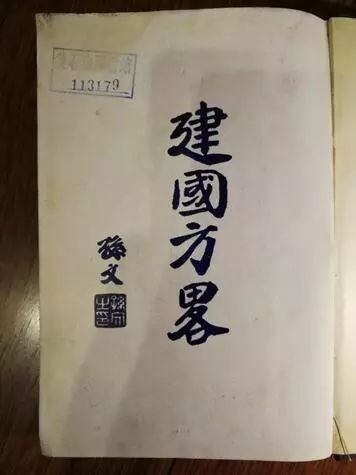 113179
建國方畧
孫文
孫文之印